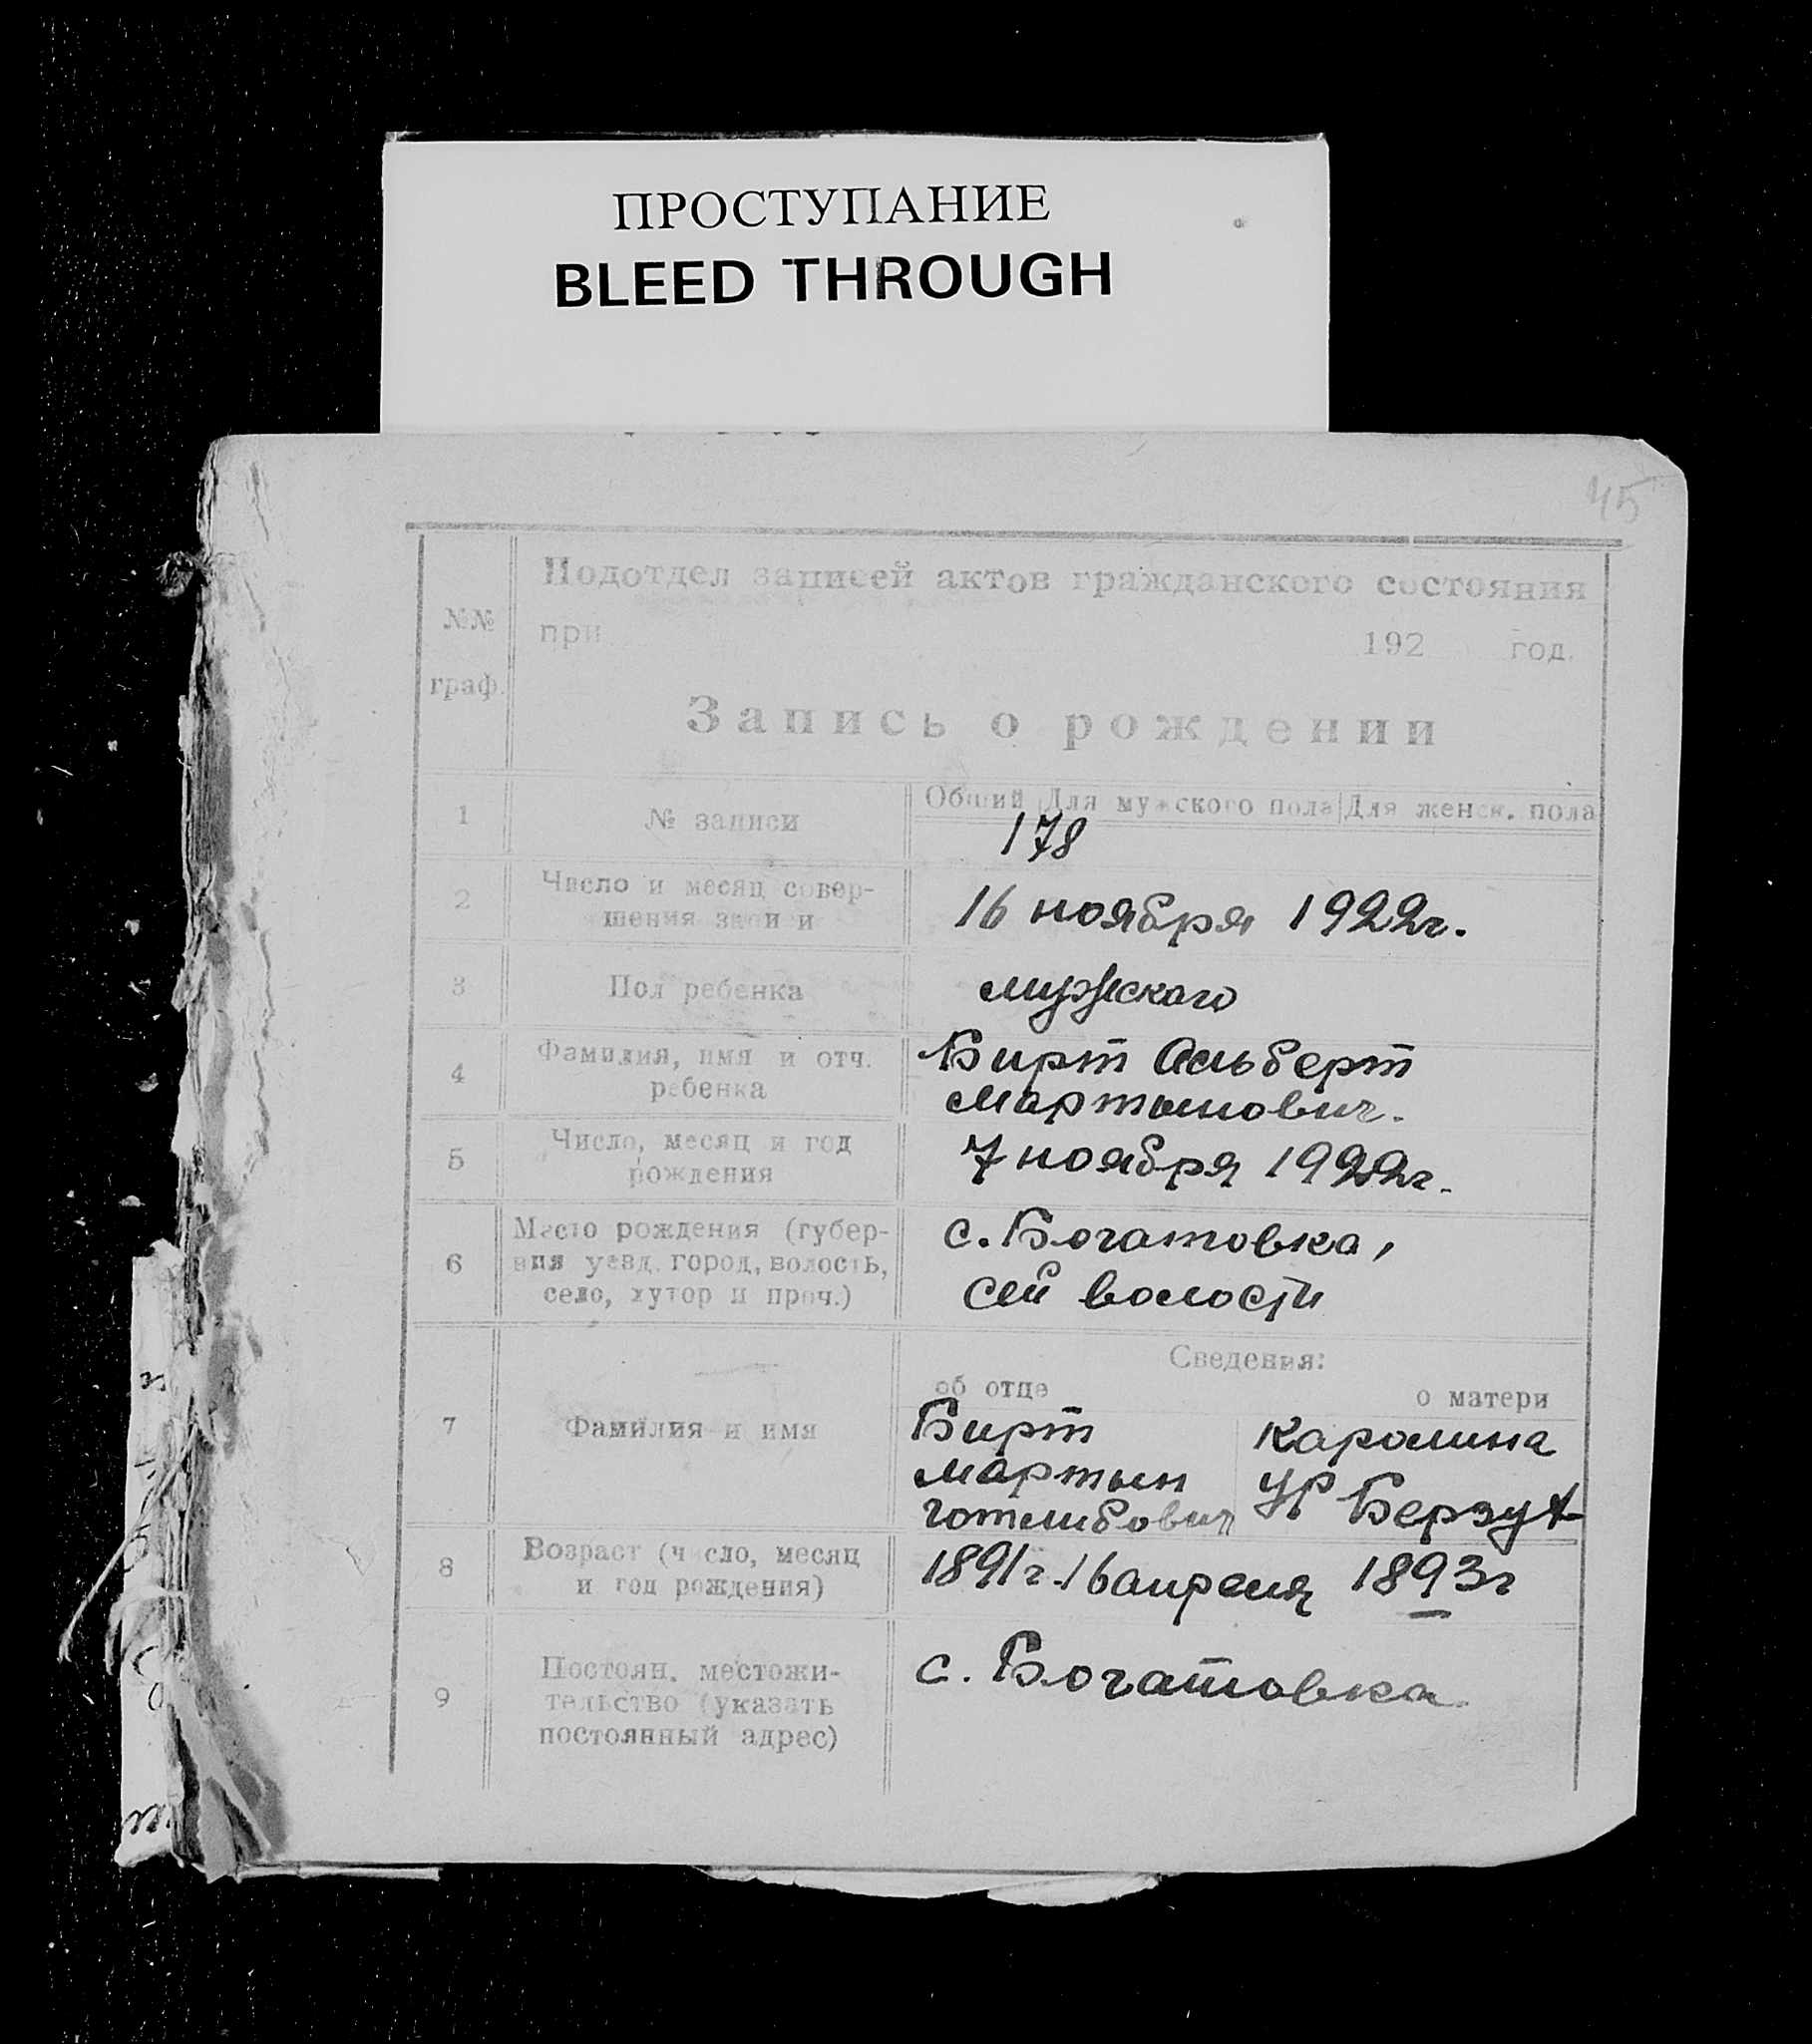 ПРОСТУПАНИЕ
BLEED THROUGH
45
Подотдел записей актов гражданского состояния
№№
граф.
при 192 год.
Запись о рождении
1 № записи
Общий Для мужского пола Для женск. пола
178
2 Число и месяц совер-
шения записи
16 ноября 1922г.
3 Пол ребенка
мужскаго
4 Фамилия, имя и отч.
ребенка
Бирт Альберт
Мартынович.
5 Число, месяц и год
рождения
7 ноября 1922г.
6 Место рождения (губер-
ния уезд. город, волость,
село, хутор и проч.)
с. Богатовка,
сей волости
7 Фамилия и имя
Сведения:
об отце
о матери
Бирт
Мартын
Готлибович
Каролина
ур
8 Возраст (число, месяц
и год рождения)
1891г. 16 апреля
1893г
9 Постоян. местожи-
тельство (указать
постоянный адрес)
с. Богатовка